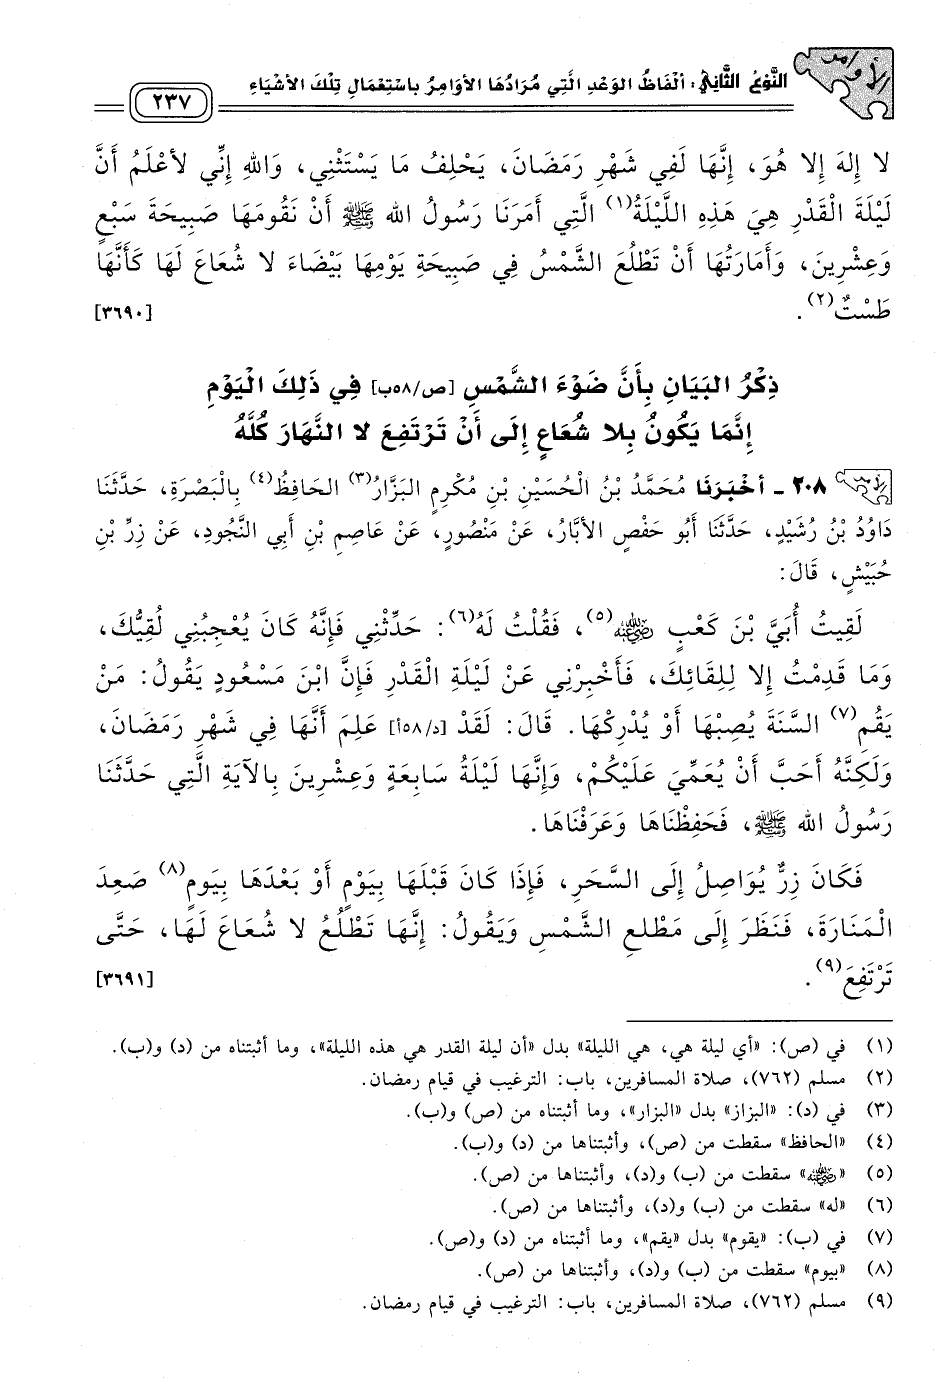 الأوامر
النَّوْعُ الثَّانِي: أَلْفَاظُ الوَعْدِ الَّتِي مُرَادُهَا الأَوَامِرُ بِاسْتِعْمَالِ تِلْكَ الأَشْيَاءِ
٢٣٧
لا إِلهَ إِلا هُوَ، إِنَّهَا لَفِي شَهْرِ رَمَضَانَ، يَحْلِفُ مَا يَسْتَثْنِي، وَاللهِ إِنِّي لأَعْلَمُ أَنَّ
لَيْلَةَ الْقَدْرِ هِيَ هَذِهِ اللَّيْلَةُ(١) الَّتِي أَمَرَنَا رَسُولُ اللهِ ﷺ أَنْ نَقُومَهَا صَبِيحَةَ سَبْعٍ
وَعِشْرِينَ، وَأَمَارَتُهَا أَنْ تَطْلُعَ الشَّمْسُ فِي صَبِيحَةِ يَوْمِهَا بَيْضَاءَ لا شُعَاعَ لَهَا كَأَنَّهَا
طَسْتٌ(٢). [٣٦٩٠]
ذِكْرُ البَيَانِ بِأَنَّ ضَوْءَ الشَّمْسِ [ص/٥٨ب] فِي ذَلِكَ الْيَوْمِ
إِنَّمَا يَكُونُ بِلا شُعَاعٍ إِلَى أَنْ تَرْتَفِعَ لا النَّهَارَ كُلَّهُ
الأوامر ٢٠٨ - أَخْبَرَنَا مُحَمَّدُ بْنُ الْحُسَيْنِ بْنِ مُكْرَمٍ البَزَّارُ(٣) الحَافِظُ(٤) بِالْبَصْرَةِ، حَدَّثَنَا
دَاوُدُ بْنُ رُشَيْدٍ، حَدَّثَنَا أَبُو حَفْصٍ الأَبَّارُ، عَنْ مَنْصُورٍ، عَنْ عَاصِمِ بْنِ أَبِي النَّجُودِ، عَنْ زِرِّ بْنِ
حُبَيْشٍ، قَالَ:
لَقِيتُ أُبَيَّ بْنَ كَعْبٍ رضي الله عنه(٥)، فَقُلْتُ لَهُ(٦): حَدِّثْنِي فَإِنَّهُ كَانَ يُعْجِبُنِي لُقِيُّكَ،
وَمَا قَدِمْتُ إِلا لِلِقَائِكَ، فَأَخْبِرْنِي عَنْ لَيْلَةِ الْقَدْرِ فَإِنَّ ابْنَ مَسْعُودٍ يَقُولُ: مَنْ
يَقُمِ(٧) السَّنَةَ يُصِبْهَا أَوْ يُدْرِكْهَا. قَالَ: لَقَدْ [د/٥٨أ] عَلِمَ أَنَّهَا فِي شَهْرِ رَمَضَانَ،
وَلَكِنَّهُ أَحَبَّ أَنْ يُعَمِّيَ عَلَيْكُمْ، وَإِنَّهَا لَيْلَةُ سَابِعَةٍ وَعِشْرِينَ بِالآيَةِ الَّتِي حَدَّثَنَا
رَسُولُ اللهِ ﷺ، فَحَفِظْنَاهَا وَعَرَفْنَاهَا.
فَكَانَ زِرٌّ يُوَاصِلُ إِلَى السَّحَرِ، فَإِذَا كَانَ قَبْلَهَا بِيَوْمٍ أَوْ بَعْدَهَا بِيَومٍ(٨) صَعِدَ
الْمَنَارَةَ، فَنَظَرَ إِلَى مَطْلَعِ الشَّمْسِ وَيَقُولُ: إِنَّهَا تَطْلُعُ لا شُعَاعَ لَهَا، حَتَّى
تَرْتَفِعَ(٩). [٣٦٩١]
(١) في (ص): «أي ليلة هي، هي الليلة» بدل «أن ليلة القدر هي هذه الليلة»، وما أثبتناه من (د) و(ب).
(٢) مسلم (٧٦٢)، صلاة المسافرين، باب: الترغيب في قيام رمضان.
(٣) في (د): «البزاز» بدل «البزار»، وما أثبتناه من (ص) و(ب).
(٤) «الحافظ» سقطت من (ص)، وأثبتناها من (د) و(ب).
(٥) «رضي الله عنه» سقطت من (ب) و(د)، وأثبتناها من (ص).
(٦) «له» سقطت من (ب) و(د)، وأثبتناها من (ص).
(٧) في (ب): «يقوم» بدل «يقم»، وما أثبتناه من (د) و(ص).
(٨) «بيوم» سقطت من (ب) و(د)، وأثبتناها من (ص).
(٩) مسلم (٧٦٢)، صلاة المسافرين، باب: الترغيب في قيام رمضان.